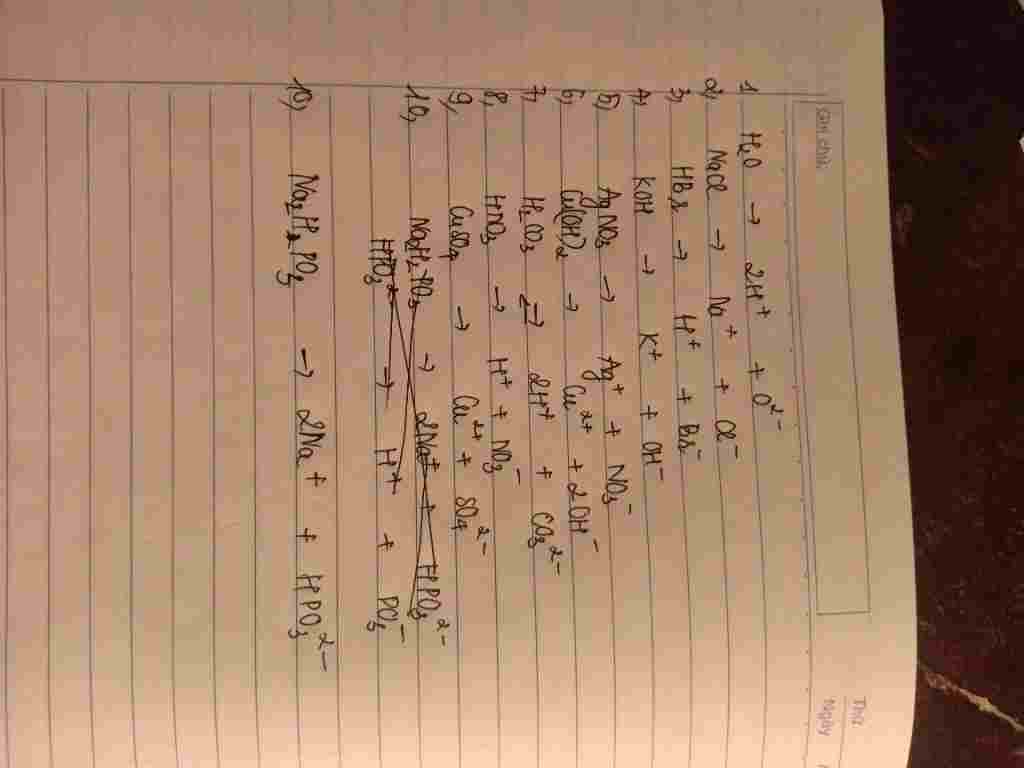 Ghi chú:
Thứ
Ngày
1, H₂O → 2H⁺ + O²⁻
2, NaCl → Na⁺ + Cl⁻
3, HBr → H⁺ + Br⁻
4, KOH → K⁺ + OH⁻
5, AgNO₃ → Ag⁺ + NO₃⁻
6, Cu(OH)₂ → Cu²⁺ + 2OH⁻
7, H₂CO₃ ⇌ 2H⁺ + CO₃²⁻
8, HNO₃ → H⁺ + NO₃⁻
9, CuSO₄ → Cu²⁺ + SO₄²⁻
10, Na₂H₂PO₃ → 2Na⁺ + HPO₃²⁻
HPO₃²⁻ → H⁺ + PO₃⁻
10, Na₂H₂PO₃ → 2Na⁺ + HPO₃²⁻